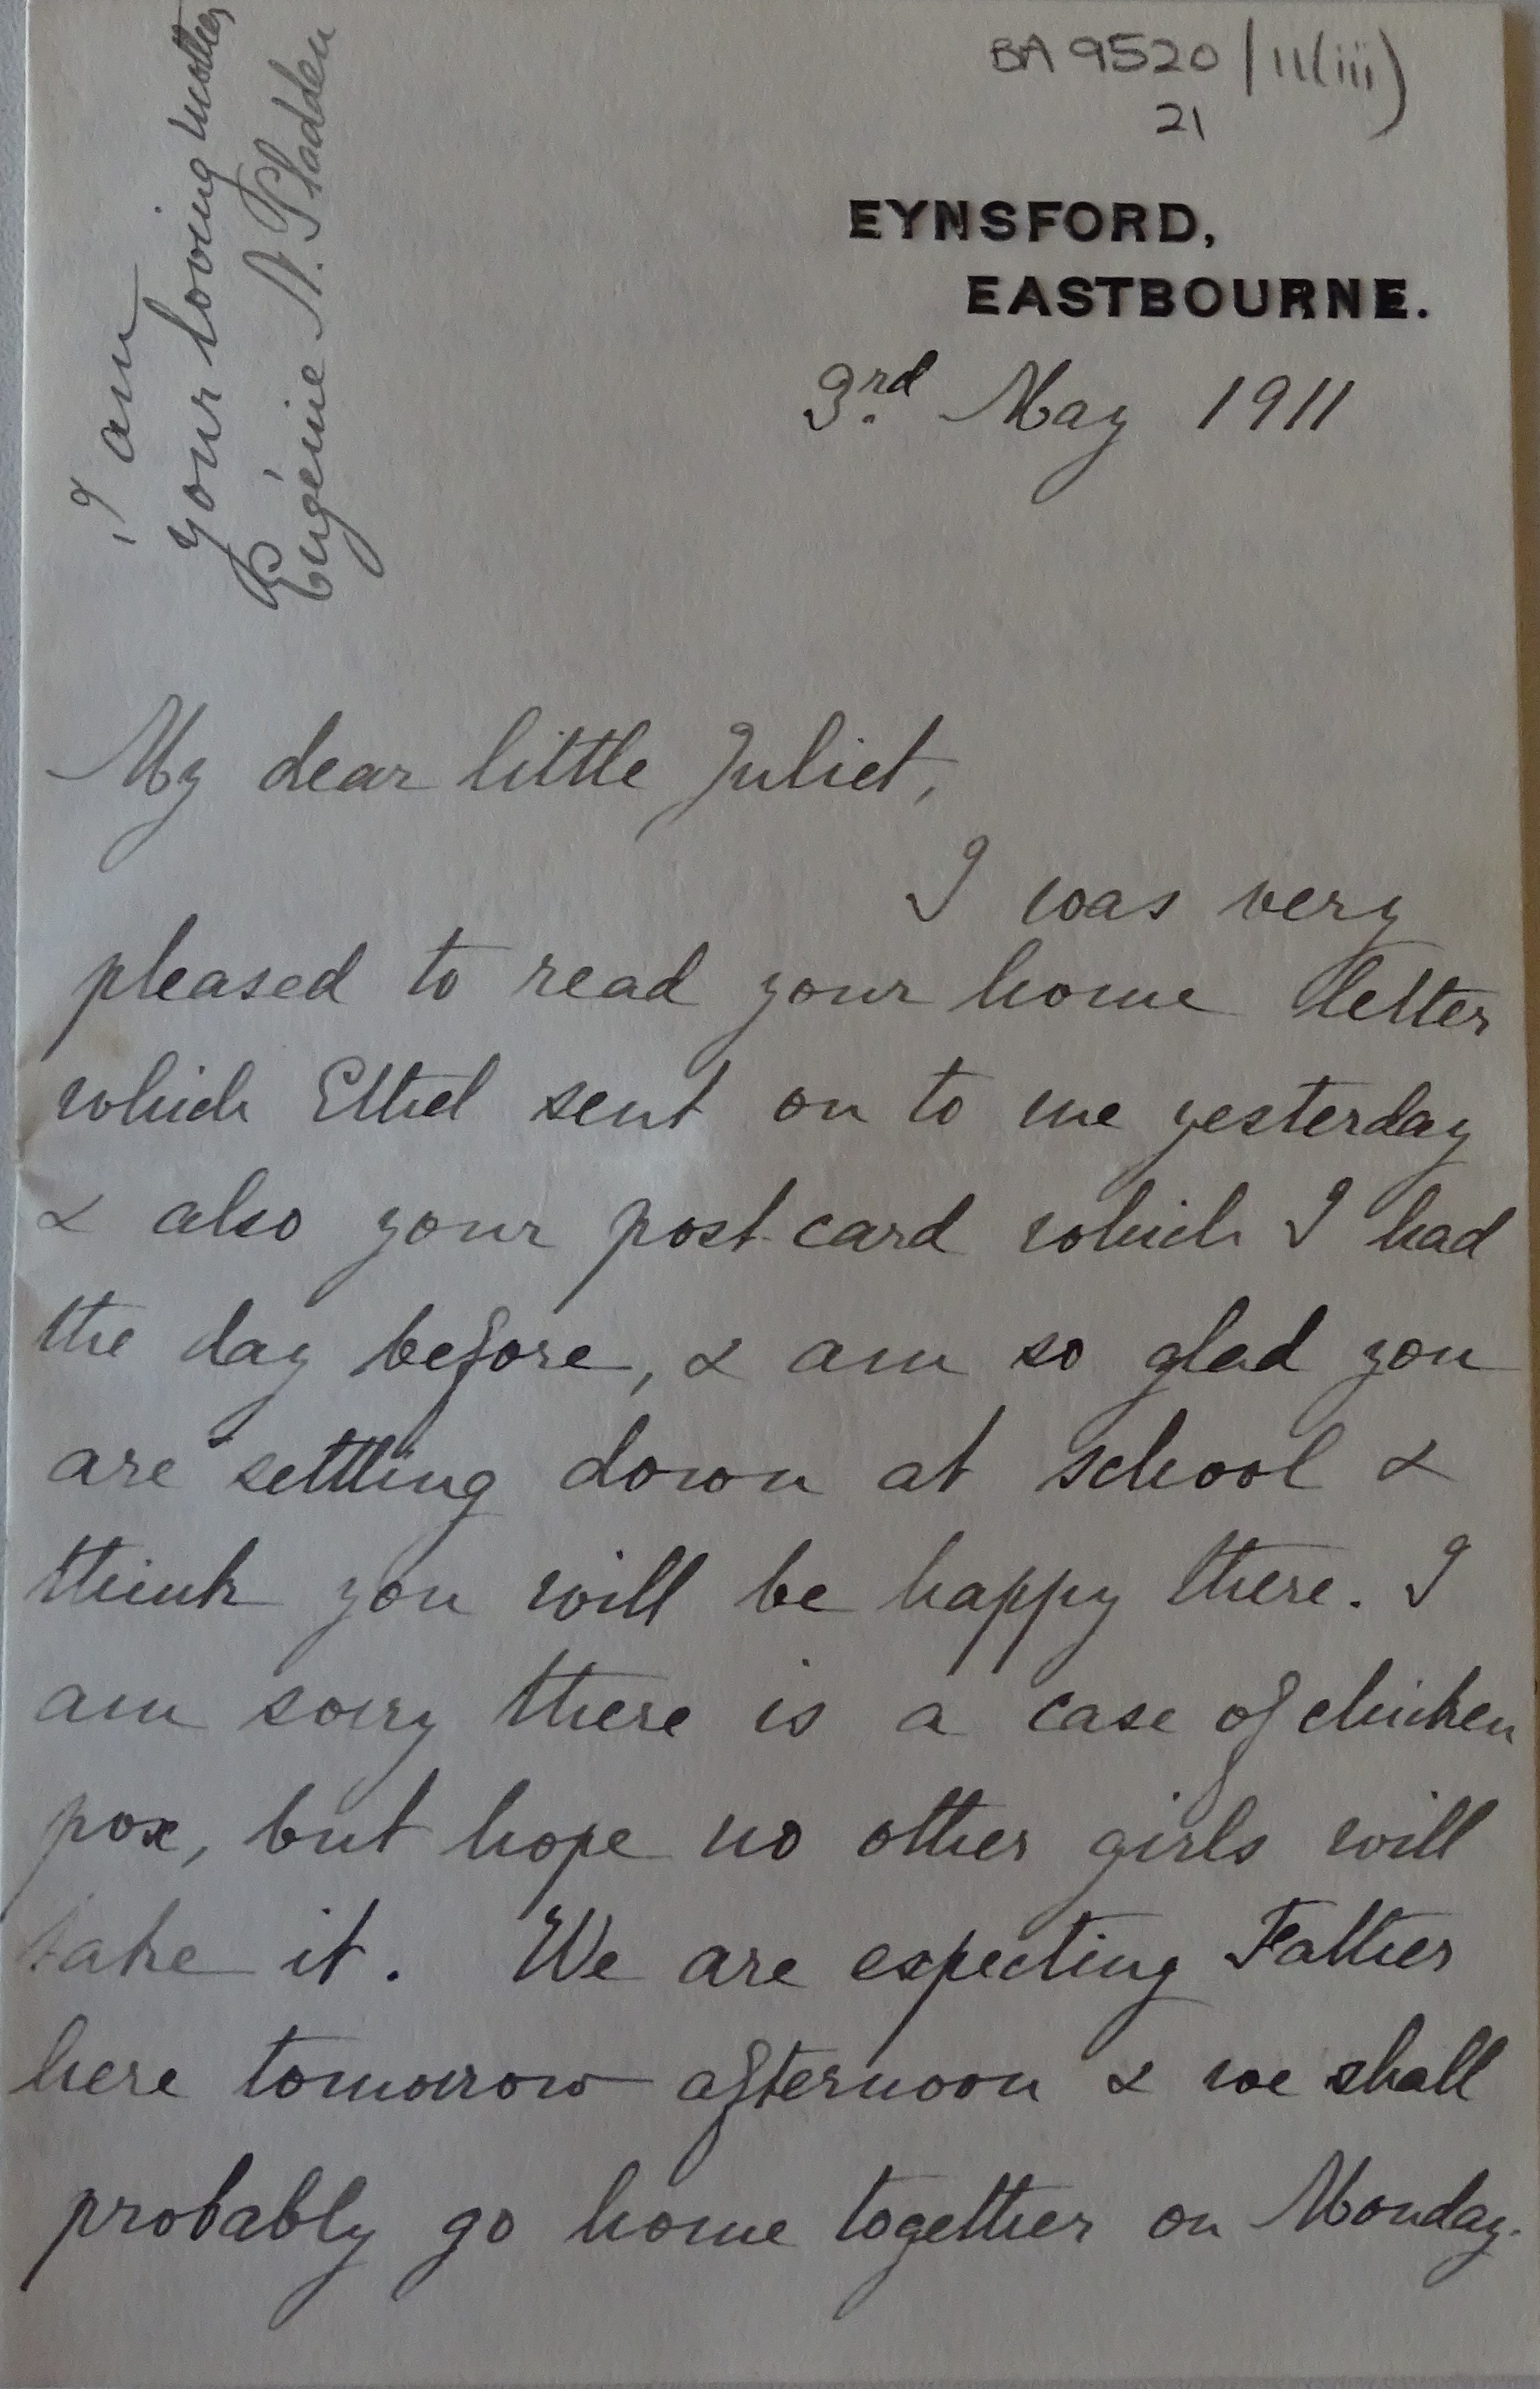 BA 9520/11(iii)
21
EYNSFORD,
EASTBOURNE.
3rd. May 1911
My dear little Juliet,
I was very
pleased to read your home letter
which Ethel sent on to me yesterday
& also your post card which I had
the day before, & am so glad you
are settling down at school &
think you will be happy there. I
am sorry there is a case of chicken
pox, but hope no other girls will
take it. We are expecting Father
here tomorrow afternoon & we shall
probably go home together on Monday.
I am
your loving mother
Eugénie N.